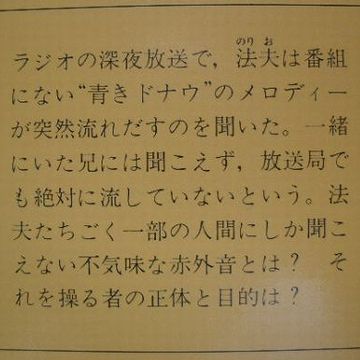 ラジオの深夜放送で，法夫は番組
にない“青きドナウ”のメロディー
が突然流れだすのを聞いた。一緒
にいた兄には聞こえず，放送局で
も絶対に流していないという。法
夫たちごく一部の人間にしか聞こ
えない不気味な赤外音とは？　そ
れを操る者の正体と目的は？
のり お